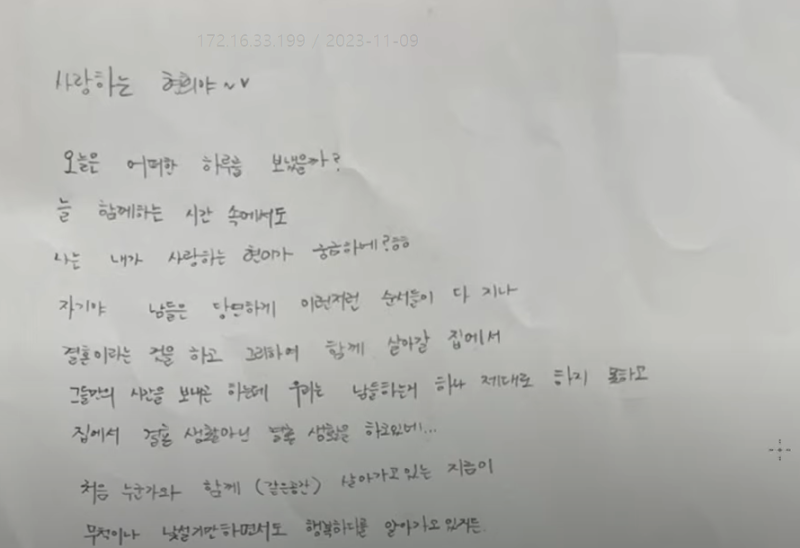 172.16.33.199 / 2023-11-09
사랑하는 현희야~♥
오늘은 어떠한 하루를 보냈을까?
늘 함께하는 시간 속에서도
나는 내가 사랑하는 현이가 궁금하네?ㅎㅎ
자기야 남들은 당연하게 이런저런 순서들이 다 지나
결혼이라는 것을 하고 그리하여 함께 살아갈 집에서
그들만의 시간을 보내곤 하는데 우리는 남들하는거 하나 제대로 하지 못하고
집에서 결혼 생활아닌 결혼 생활을 하고있네...
처음 누군가와 함께 (같은공간) 살아가고있는 지금이
무척이나 낯설기만하면서도 행복하다를 알아가고 있거든.